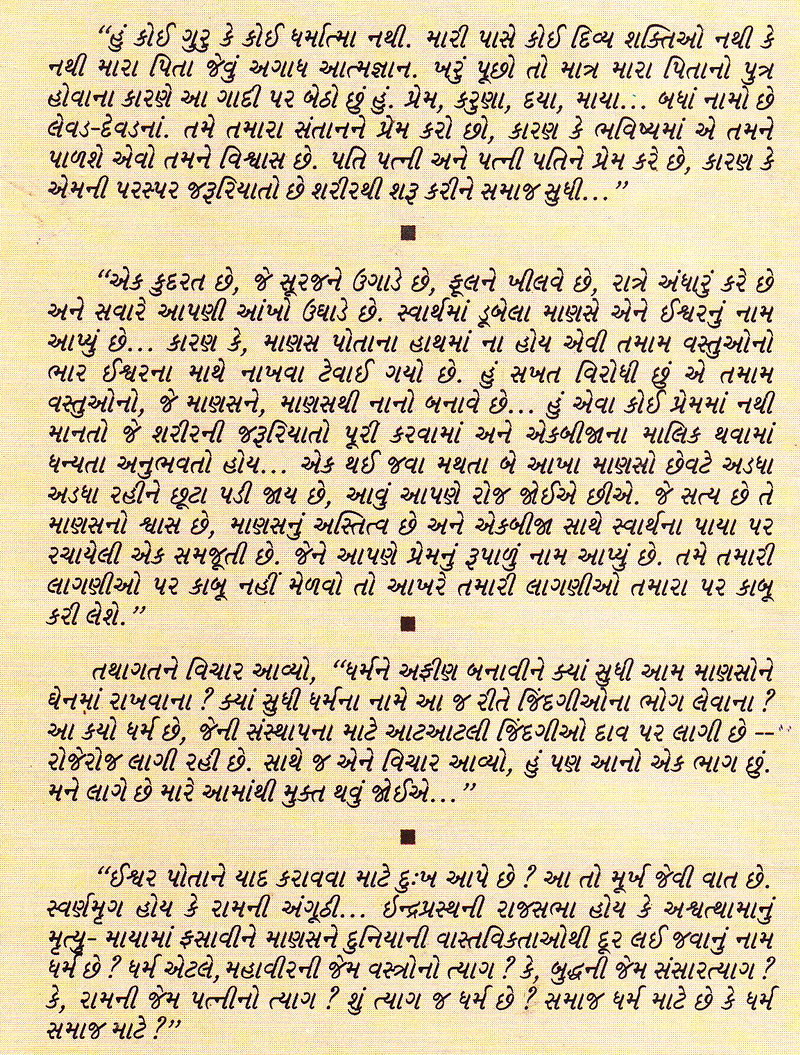 “હું કોઈ ગુરુ કે કોઈ ધર્માત્મા નથી. મારી પાસે કોઈ દિવ્ય શક્તિઓ નથી કે
નથી મારા પિતા જેવું અગાધ આત્મજ્ઞાન. ખરું પૂછો તો માત્ર મારા પિતાનો પુત્ર
હોવાના કારણે આ ગાદી પર બેઠો છું હું. પ્રેમ, કરુણા, દયા, માયા... બધાં નામો છે
લેવડ-દેવડનાં. તમે તમારા સંતાનને પ્રેમ કરો છો, કારણ કે ભવિષ્યમાં એ તમને
પાળશે એવો તમને વિશ્વાસ છે. પતિ પત્ની અને પત્ની પતિને પ્રેમ કરે છે, કારણ કે
એમની પરસ્પર જરૂરિયાતો છે શરીરથી શરૂ કરીને સમાજ સુધી...”
■
“એક કુદરત છે, જે સૂરજને ઉગાડે છે, ફૂલને ખીલવે છે, રાત્રે અંધારું કરે છે
અને સવારે આપણી આંખો ઉઘાડે છે. સ્વાર્થમાં ડૂબેલા માણસે એને ઈશ્વરનું નામ
આપ્યું છે... કારણ કે, માણસ પોતાના હાથમાં ના હોય એવી તમામ વસ્તુઓનો
ભાર ઈશ્વરના માથે નાખવા ટેવાઈ ગયો છે. હું સખત વિરોધી છું એ તમામ
વસ્તુઓનો, જે માણસને, માણસથી નાનો બનાવે છે... હું એવા કોઈ પ્રેમમાં નથી
માનતો જે શરીરની જરૂરિયાતો પૂરી કરવામાં અને એકબીજાના માલિક થવામાં
ધન્યતા અનુભવતો હોય... એક થઈ જવા મથતા બે આખા માણસો છેવટે અડધા
અડધા રહીને છૂટા પડી જાય છે, આવું આપણે રોજ જોઈએ છીએ. જે સત્ય છે તે
માણસનો શ્વાસ છે, માણસનું અસ્તિત્વ છે અને એકબીજા સાથે સ્વાર્થના પાયા પર
રચાયેલી એક સમજૂતી છે. જેને આપણે પ્રેમનું રૂપાળું નામ આપ્યું છે. તમે તમારી
લાગણીઓ પર કાબૂ નહીં મેળવો તો આખરે તમારી લાગણીઓ તમારા પર કાબૂ
કરી લેશે.”
■
તથાગતને વિચાર આવ્યો, “ધર્મને અફીણ બનાવીને ક્યાં સુધી આમ માણસોને
ઘેનમાં રાખવાના ? ક્યાં સુધી ધર્મના નામે આ જ રીતે જિંદગીઓના ભોગ લેવાના ?
આ કયો ધર્મ છે, જેની સંસ્થાપના માટે આટઆટલી જિંદગીઓ દાવ પર લાગી છે --
રોજેરોજ લાગી રહી છે. સાથે જ એને વિચાર આવ્યો, હું પણ આનો એક ભાગ છું.
મને લાગે છે મારે આમાંથી મુક્ત થવું જોઈએ...”
■
“ઈશ્વર પોતાને યાદ કરાવવા માટે દુઃખ આપે છે ? આ તો મૂર્ખ જેવી વાત છે.
સ્વર્ણમૃગ હોય કે રામની અંગૂઠી... ઈન્દ્રપ્રસ્થની રાજસભા હોય કે અશ્વત્થામાનું
મૃત્યુ- માયામાં ફસાવીને માણસને દુનિયાની વાસ્તવિકતાઓથી દૂર લઈ જવાનું નામ
ધર્મ છે ? ધર્મ એટલે, મહાવીરની જેમ વસ્ત્રોનો ત્યાગ ? કે, બુદ્ધની જેમ સંસારત્યાગ ?
કે, રામની જેમ પત્નીનો ત્યાગ ? શું ત્યાગ જ ધર્મ છે ? સમાજ ધર્મ માટે છે કે ધર્મ
સમાજ માટે ?”